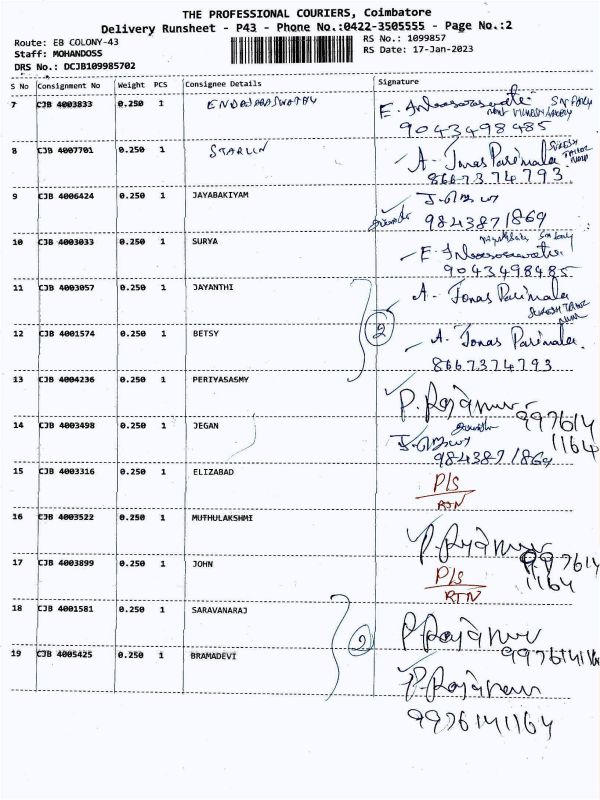 THE PROFESSIONAL COURIERS, Coimbatore
Delivery Runsheet - P43 - Phone No.:0422-3505555 - Page No.:2
Route: EB COLONY-43
RS No.: 1099857
Staff: MOHANDOSS
RS Date: 17-Jan-2023
DRS No.: DCJB109985702
S No Consignment No Weight PCS Consignee Details Signature
7 CJB 4003833 0.250 1 E.
9043498485
8 CJB 4007701 0.250 1 STARLIN A. Jonas Parimala
8667374793
9 CJB 4006424 0.250 1 JAYABAKIYAM
9843871869
10 CJB 4003033 0.250 1 SURYA E.
9043498485
11 CJB 4003057 0.250 1 JAYANTHI A. Jonas Parimala
2
12 CJB 4001574 0.250 1 BETSY A. Jonas Parimala
8667374793
13 CJB 4004236 0.250 1 PERIYASASMY P. Rajamur
997614
1164
14 CJB 4003498 0.250 1 JEGAN
9843871869
15 CJB 4003316 0.250 1 ELIZABAD P/S
RTN
16 CJB 4003522 0.250 1 MUTHULAKSHMI P. Rajamur
997614
1164
17 CJB 4003899 0.250 1 JOHN P/S
RTN
18 CJB 4001581 0.250 1 SARAVANARAJ P. Rajamur
2
19 CJB 4005425 0.250 1 BRAMADEVI P. Rajamur
9976141164